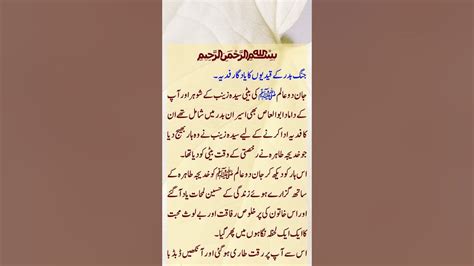 بسم اللہ الرحمن الرحیم
جنگ بدر کے قیدیوں کا یادگار فدیہ۔
جان دو عالم ﷺ کی بیٹی سیدہ زینب کے شوہر اور آپ
کے داماد ابوالعاص بھی اسیران بدر میں شامل تھے ان
کا فدیہ ادا کرنے کے لیے سیدہ زینب نے وہ ہار بھیج دیا
جو خدیجہ طاہرہ نے رخصتی کے وقت بیٹی کو دیا تھا۔
اس ہار کو دیکھ کر جان دو عالم ﷺ کو خدیجہ طاہرہ کے
ساتھ گزارے ہوئے زندگی کے حسین لمحات یاد آ گئے
اور اس خاتون کی پر خلوص رفاقت اور بے لوث محبت
کا ایک ایک لحظہ نگاہوں میں پھر گیا۔
اس سے آپ پر رقت طاری ہو گئی اور آنکھیں ڈبڈبا